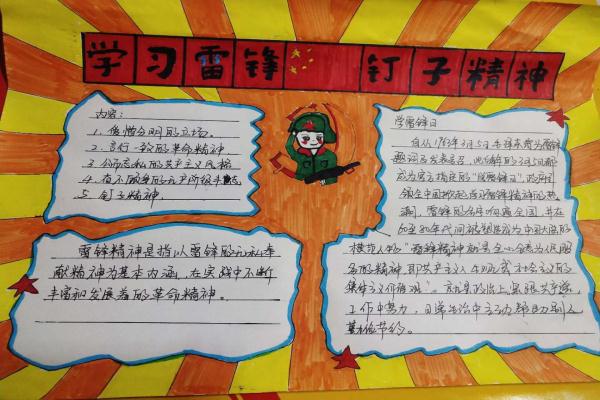 学习雷锋 钉子精神
内容:
1. 憎爱分明的立场。
2. 言行一致的革命精神,
3. 公而忘私的共产主义风格
4. 奋不顾身的无产阶级斗志
5. 钉子精神.
雷锋精神是指以雷锋的无私奉
献精神为基本内涵,在实践中不断
丰富和发展着的革命精神。
学雷锋日
自从1963年3月5日毛泽东
题词 发表后,此 的3月5日都
成为官方指定的"学雷锋日".政府引
领全中国掀起 学习雷锋精神的热
潮,雷锋的名字响遍全国,并在
60至80年代间被塑造为中国大陆的
模范人物"雷锋精神就是全心全意为人民服
务的精神,即共产主义人生观或社会主义的
集体主义价值观"。
工作中努力,日常生活中主动帮助别人
勤俭节约。